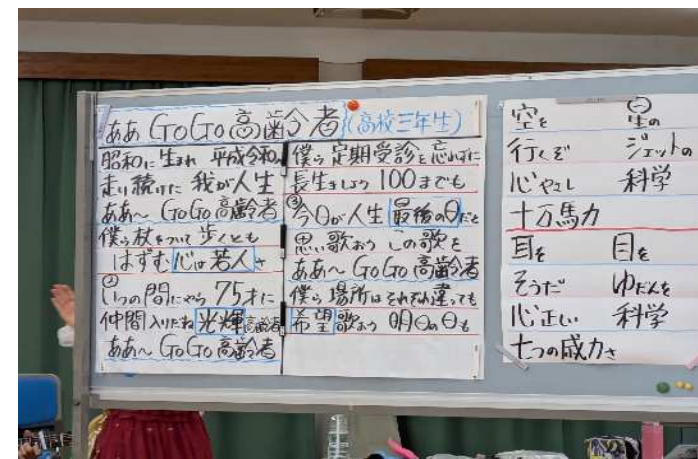 ああ GoGo高齢者 (高校三年生)
昭和に生まれ 平成令和
走り続けた 我が人生
ああ～ GoGo高齢者
僕ら杖をついて歩くとも
はずむ心は若人さ
②いつの間にやら 75才に
仲間入りだね 光輝高齢者
ああ～ GoGo高齢者
僕ら定期受診を忘れずに
長生きしよう 100までも
③今日が人生 最後の日だと
思い歌おう この歌を
ああ～ GoGo高齢者
僕ら場所はそれぞれ違っても
希望歌おう 明日の日も
空を 星の
行くぞ ジェットの
心やさし 科学
十万馬力
耳を 目を
そうだ ゆだんを
心正しい 科学
七つの威力さ